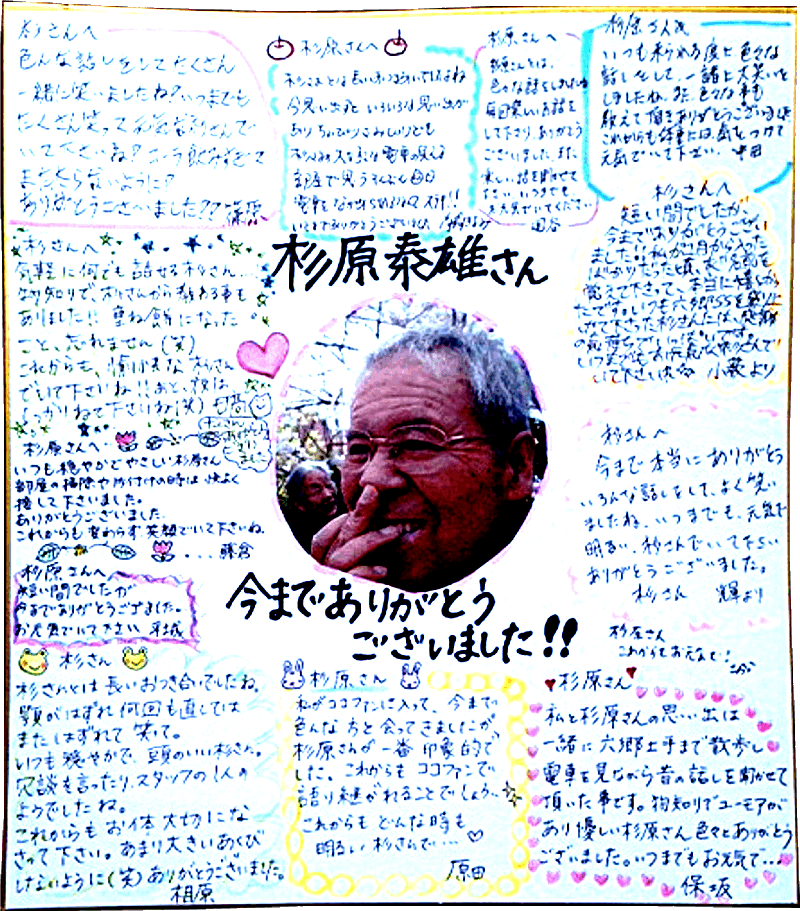 杉さんへ
色んな話しをしてたくさん
一緒に笑いましたね?いつまでも
たくさん笑って
いて下さいね?
ように?
ありがとうございました??
杉原さんへ
杉さんとは長いおつき合いでしたね
今思い出すといろいろな思い出が
あり
電車の見える
部屋で
杉原さんへ
杉原さんとは、
色々な話をしました
毎回楽しい話を
して下さり、ありがとう
ございました。また
楽しい話を聞かせて
下さい。いつまでも
お元気でいてください
杉原さんへ
いつも来られる度に色々な
話しをして、一緒に大笑いを
しましたね。また、色々な事も
教えて頂きありがとうございました
これからも
元気でいて下さい。
杉さんへ
短い間でしたが、
今まで、ありがとうござい
ました!!私が
覚えて下さって、本当に嬉しかっ
たです。いつも
杉さんには、
いつまでもお元気な杉さんで
いて下さいね 小薮より
杉原泰雄さん
杉さんへ
気軽に何でも話せる杉さん...
物知りで、杉さんから教わる事も
ありました!! 重ね餅になった
こと、忘れません(笑)
これからも、
でいて下さいね!!あと、
下さいね(笑)
杉原さんへ
いつも穏やかでやさしい杉原さん
部屋の掃除や片付けの時は快よく
接して下さいました。
ありがとうございました
これからも変わらず笑顔でいて下さいね。
...藤倉
杉原さんへ
短い間でしたが
今までありがとうございました。
お元気でいて下さい
杉さんへ
今まで本当にありがとう
いろんな話しをして、よく笑い
ましたね。いつまでも、元気で
明るい、杉さんでいて下さい
ありがとうございました。
杉さん 輝より
今までありがとう
ございました!!
これからもお元気で!
杉さん
杉さんとは長いおつき合いでしたね。
顎がはずれ何回も直しては
またはずれて笑って。
いつも穏やかで、頭のいい杉さん。
冗談を言ったり、スタッフの1人の
ようでしたね。
これからもお体大切にな
さって下さい。あまり大きいあくび
しないように(笑)ありがとうございました。
相原
杉原さん
私がココファンに入って、今まで
色んな方と会ってきましたが、
杉原さんが一番印象的で
した。これからもココファンで
語り継がれることでしょう...
これからもどんな時も
明るい杉さんで...
原田
杉原さん
私と杉原さんの思い出は
一緒に六郷土手まで散歩し
電車を見ながら昔の話しを聞かせて
頂いた事です。物知りでユーモアが
あり優しい杉原さん色々とありがとう
ございました。いつまでもお元気で...
保坂